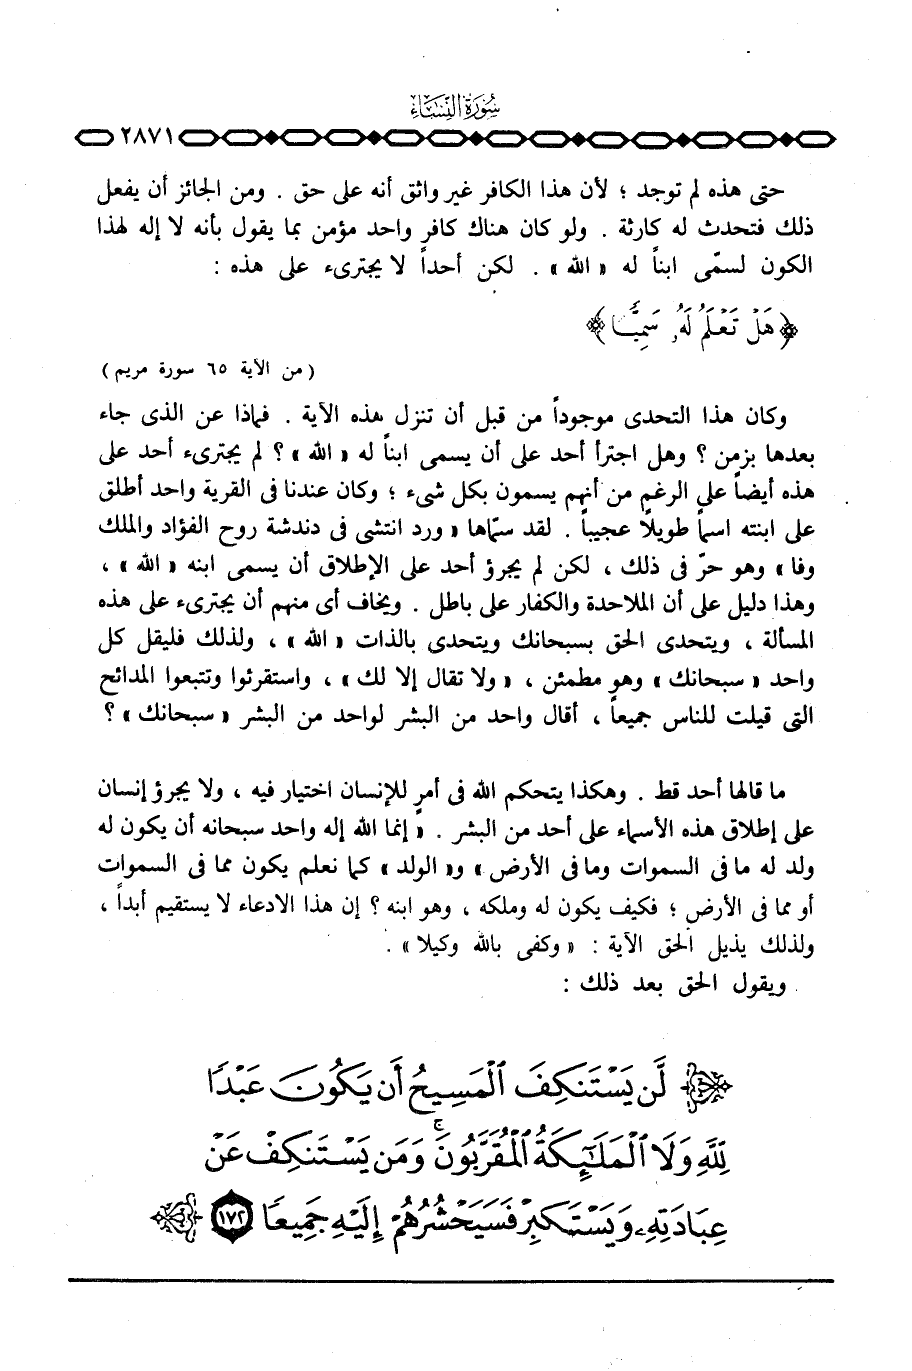 سُورَةُ النِّسَاءِ
٢٨٧١
حتى هذه لم توجد ؛ لأن هذا الكافر غير واثق أنه على حق . ومن الجائز أن يفعل
ذلك فتحدث له كارثة . ولو كان هناك كافر واحد مؤمن بما يقول بأنه لا إله لهذا
الكون لسمّى ابناً له « الله » . لكن أحداً لا يجترىء على هذه :
﴿ هَلْ تَعْلَمُ لَهُۥ سَمِيًّا ﴾
( من الآية ٦٥ سورة مريم )
وكان هذا التحدى موجوداً من قبل أن تنزل هذه الآية . فماذا عن الذى جاء
بعدها بزمن ؟ وهل اجترأ أحد على أن يسمى ابناً له « الله » ؟ لم يجترىء أحد على
هذه أيضاً على الرغم من أنهم يسمون بكل شىء ؛ وكان عندنا فى القرية واحد أطلق
على ابنته اسماً طويلاً عجيباً . لقد سمّاها « ورد انتشى فى دندشة روح الفؤاد والملك
وفا » وهو حرّ فى ذلك ، لكن لم يجرؤ أحد على الإطلاق أن يسمى ابنه « الله » ،
وهذا دليل على أن الملاحدة والكفار على باطل . ويخاف أى منهم أن يجترىء على هذه
المسألة ، ويتحدى الحق بسبحانك ويتحدى بالذات « الله » ، ولذلك فليقل كل
واحد « سبحانك » وهو مطمئن ، « ولا تقال إلا لك » ، واستقرئوا وتتبعوا المدائح
التى قيلت للناس جميعاً ، أقال واحد من البشر لواحد من البشر « سبحانك » ؟
ما قالها أحد قط . وهكذا يتحكم الله فى أمرٍ للإنسان اختيار فيه ، ولا يجرؤ إنسان
على إطلاق هذه الأسماء على أحد من البشر . « إنما الله إله واحد سبحانه أن يكون له
ولد له ما فى السموات وما فى الأرض » و« الولد » كما نعلم يكون مما فى السموات
أو مما فى الأرض ؛ فكيف يكون له وملكه ، وهو ابنه ؟ إن هذا الادعاء لا يستقيم أبداً ،
ولذلك يذيل الحق الآية : « وكفى بالله وكيلا » .
ويقول الحق بعد ذلك :
لَّن يَسْتَنكِفَ ٱلْمَسِيحُ أَن يَكُونَ عَبْدًا
لِّلَّهِ وَلَا ٱلْمَلَٰٓئِكَةُ ٱلْمُقَرَّبُونَ ۚ وَمَن يَسْتَنكِفْ عَنْ
عِبَادَتِهِۦ وَيَسْتَكْبِرْ فَسَيَحْشُرُهُمْ إِلَيْهِ جَمِيعًا ١٧٢